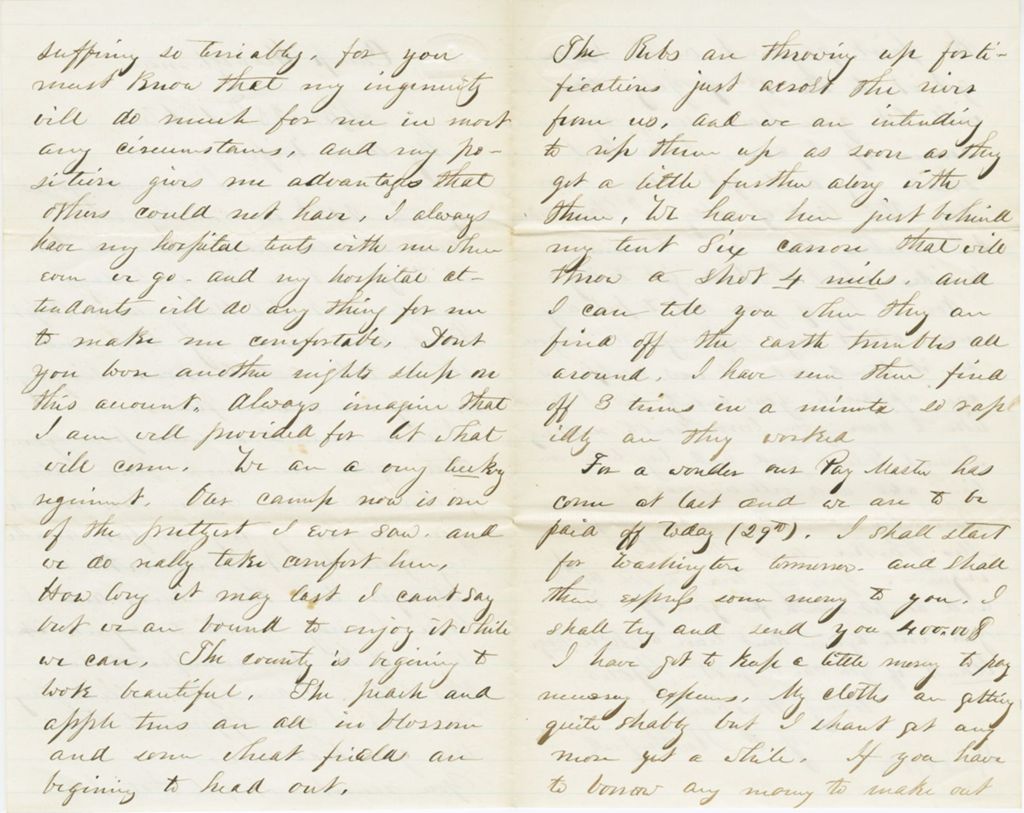 suffering so terriably, for you
must know that my ingenuity
will do much for me in most
any circumstans, and my po-
sition gives me advantages that
others could not have. I always
have my hospital tents with me wher
ever we go - and my hospital at-
tendants will do any thing for me
to make me comfortable. Dont
you loose another nights sleep on
this account. Always imagine that
I am well provided for let what
will come. We are a very lucky
regiment. Our camp now is one
of the prettyest I ever saw. and
we do really take comfort here.
How long it may last I cant say
but we are bound to enjoy it while
we can. The country is begining to
look beautiful. The peach and
apple trees are all in blossom
and some wheat fields are
begining to head out.
The Rebs are throwing up forti-
fications just acrost the river
from us, and we are intending
to rip them up as soon as they
get a little further along with
them. We have here just behind
my tent Six cannon that will
throw a shot 4 miles. and
I can tell you when they are
fired off the earth trembles all
around. I have seen them fired
off 3 times in a minute so rap
idly are they worked
For a wonder our Pay Master has
come at last and we are to be
paid off today (29th). I shall start
for Washington tomorrow. and shall
then express some money to you. I
shall try and send you 400.00$
I have got to keep a little money to pay
necessary expenses. My cloths are getting
quite shabby but I shant get any
more yet a while. If you have
to borrow any money to make out